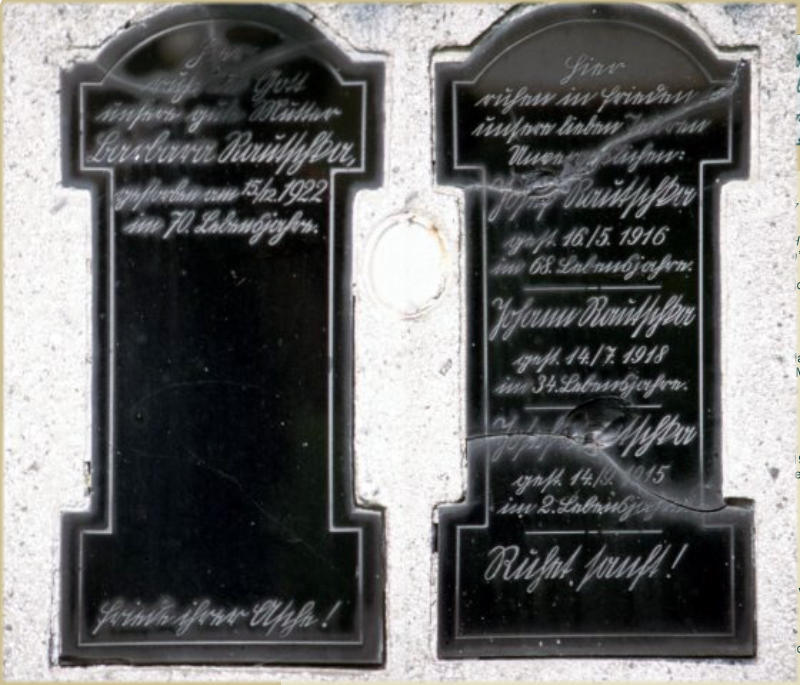 Hier
ruht in Gott
unsere gute Mutter
Barbara Rautschka,
gestorben am 15/12. 1922
im 70. Lebensjahre.
Friede ihrer Asche!
Hier
ruhen in Frieden
unsere lieben
Josef Rautschka
gest. 16./5. 1916
im 68. Lebensjahre.
Johann Rautschka
gest. 14./7. 1918
im 34. Lebensjahre.
Josef Rautschka
gest. 14./9. 1915
im 2. Lebensjahre.
Ruhet sanft!